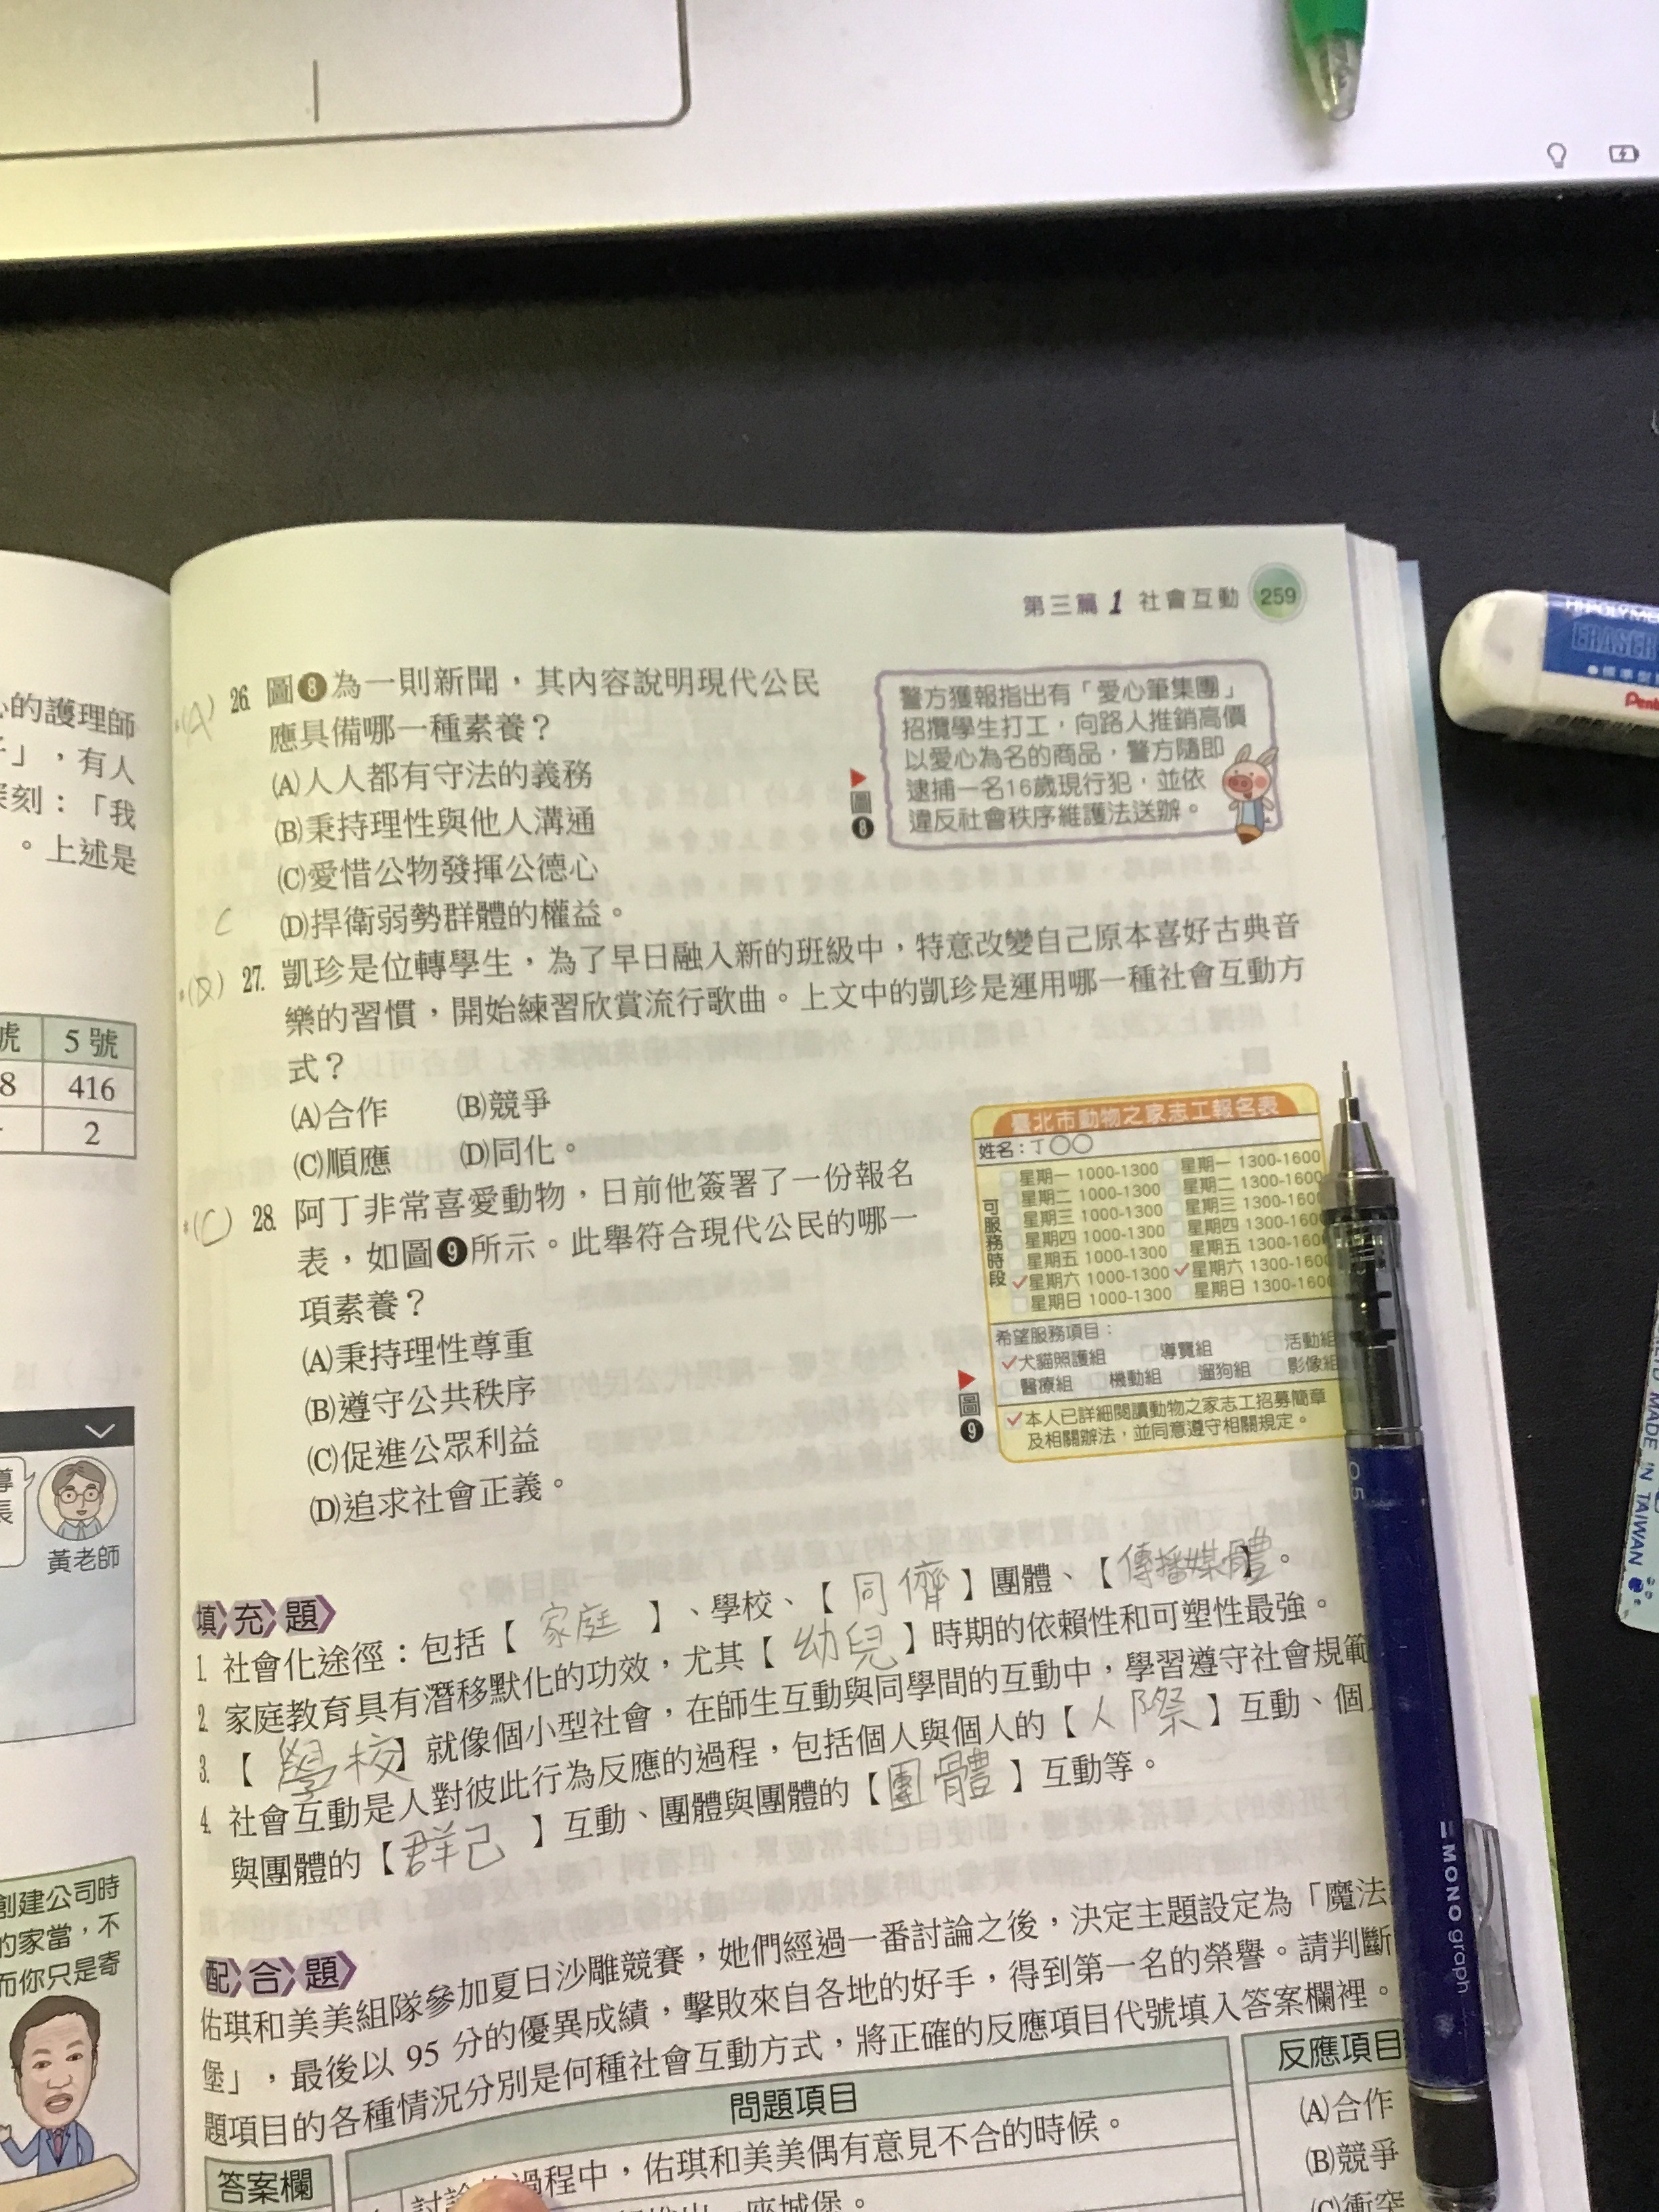 第三篇 1 社會互動 259
(A) 26. 圖❽為一則新聞，其內容說明現代公民
應具備哪一種素養？
(A)人人都有守法的義務
(B)秉持理性與他人溝通
(C)愛惜公物發揮公德心
(D)捍衛弱勢群體的權益。
警方獲報指出有「愛心筆集團」
招攬學生打工，向路人推銷高價
以愛心為名的商品，警方隨即
逮捕一名16歲現行犯，並依
違反社會秩序維護法送辦。
圖❽
C
27. 凱珍是位轉學生，為了早日融入新的班級中，特意改變自己原本喜好古典音
樂的習慣，開始練習欣賞流行歌曲。上文中的凱珍是運用哪一種社會互動方
式？
(A)合作 (B)競爭
(C)順應 (D)同化。
(C) 28. 阿丁非常喜愛動物，日前他簽署了一份報名
表，如圖❾所示。此舉符合現代公民的哪一
項素養？
(A)秉持理性尊重
(B)遵守公共秩序
(C)促進公眾利益
(D)追求社會正義。
臺北市動物之家志工報名表
姓名：丁○○
可服務時段
星期一 1000-1300 星期一 1300-1600
星期二 1000-1300 星期二 1300-1600
星期三 1000-1300 星期三 1300-1600
星期四 1000-1300 星期四 1300-1600
星期五 1000-1300 星期五 1300-1600
✓星期六 1000-1300 ✓星期六 1300-1600
星期日 1000-1300 星期日 1300-1600
希望服務項目：
✓犬貓照護組 導覽組 活動組
醫療組 機動組 遛狗組 影像組
✓本人已詳細閱讀動物之家志工招募簡章
及相關辦法，並同意遵守相關規定。
圖❾
填充題
1. 社會化途徑：包括【家庭】、學校、【同儕】團體、【傳播媒體】。
2. 家庭教育具有潛移默化的功效，尤其【幼兒】時期的依賴性和可塑性最強。
3. 【學校】就像個小型社會，在師生互動與同學間的互動中，學習遵守社會規範
4. 社會互動是人對彼此行為反應的過程，包括個人與個人的【人際】互動、個
與團體的【群己】互動、團體與團體的【團體】互動等。
配合題
佑琪和美美組隊參加夏日沙雕競賽，她們經過一番討論之後，決定主題設定為「魔法
堡」，最後以 95 分的優異成績，擊敗來自各地的好手，得到第一名的榮譽。請判斷
題項目的各種情況分別是何種社會互動方式，將正確的反應項目代號填入答案欄裡。
答案欄 問題項目 反應項目
過程中，佑琪和美美偶有意見不合的時候。
一座城堡。
(A)合作
(B)競爭
(C)衝突
心的護理師
，有人
深刻：「我
。上述是
號 5 號
8 416
2
黃老師
創建公司時
的家當，不
而你只是寄
HI-POLYMER
ERASER
Pentel
MADE IN TAIWAN
0.5
MONO graph